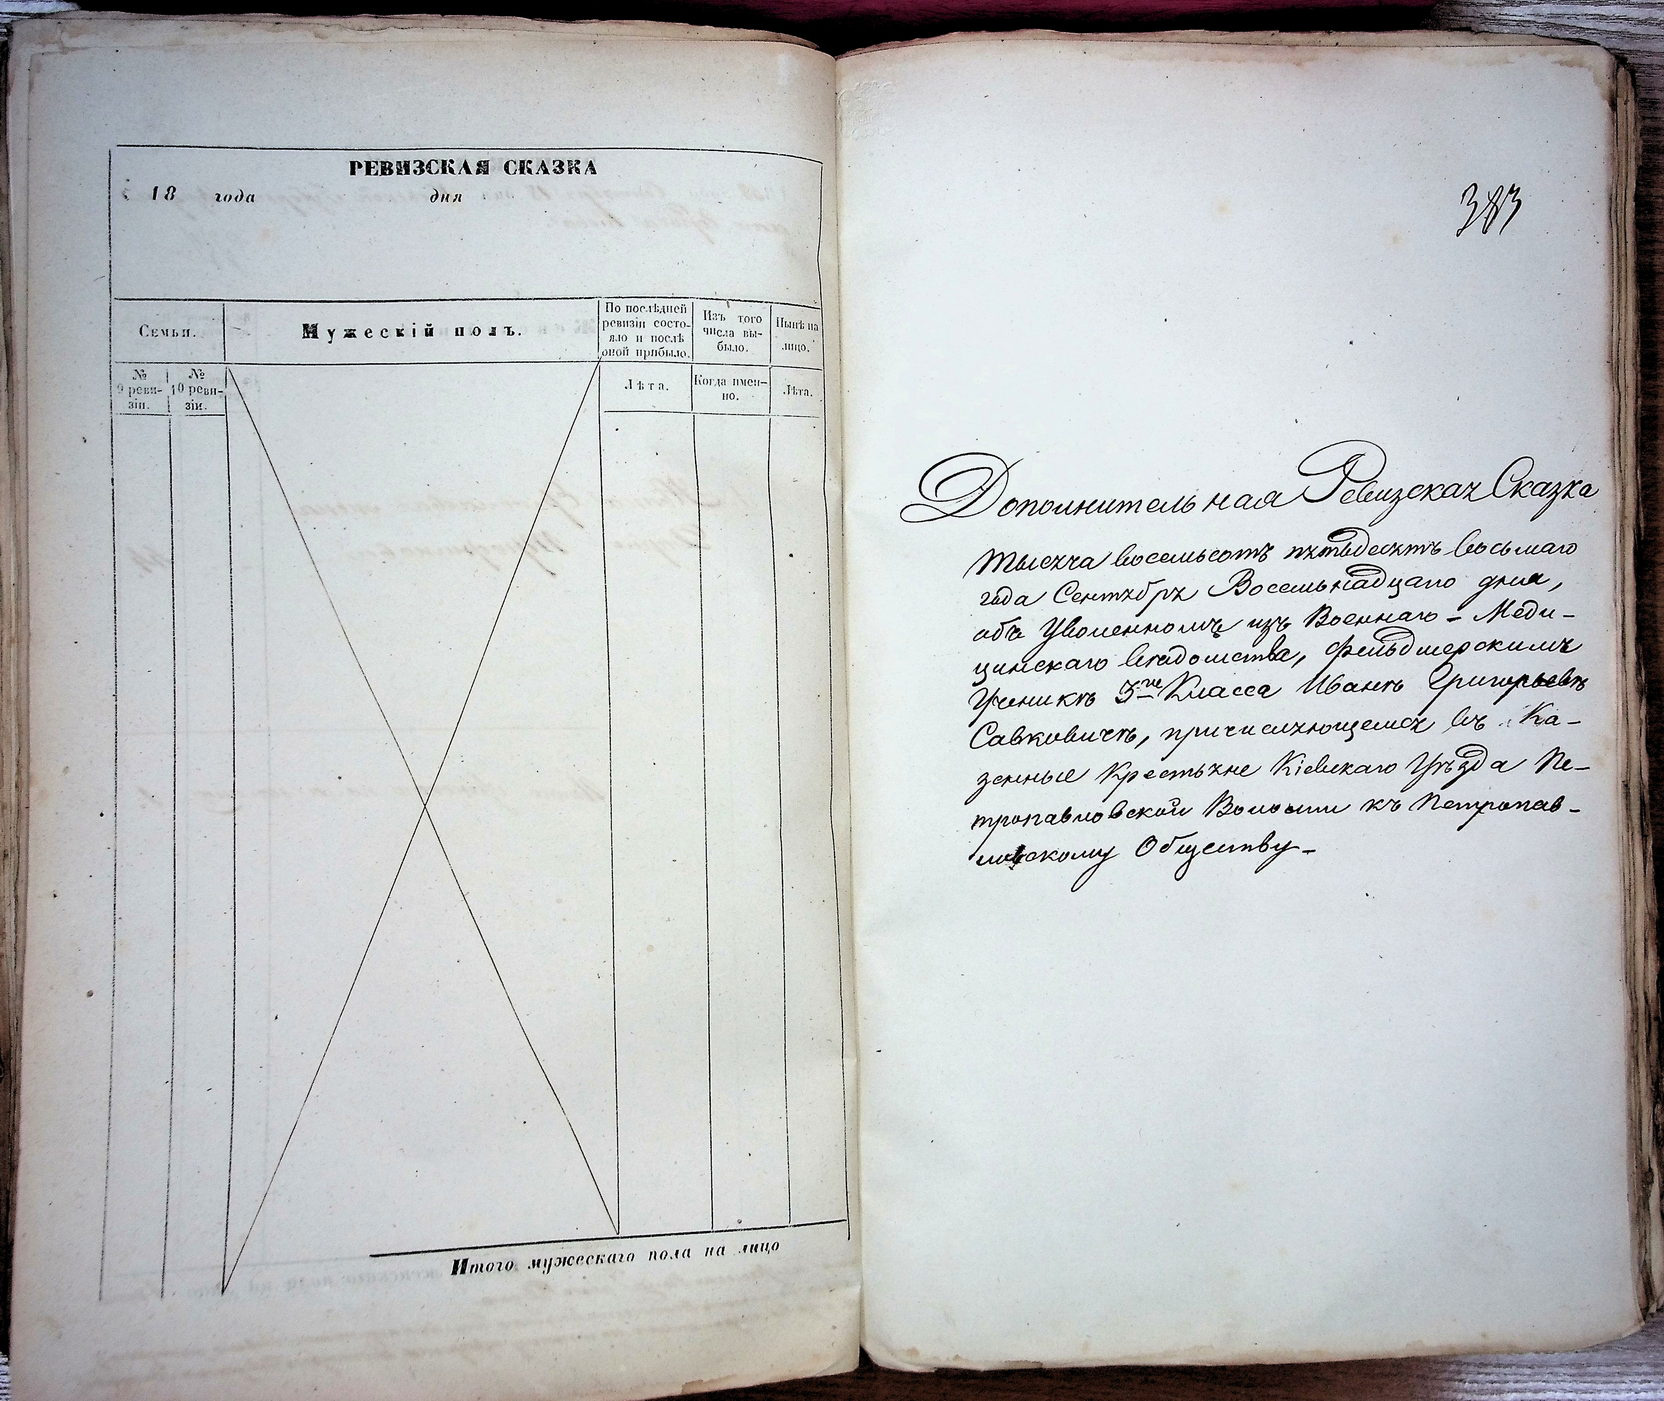 РЕВИЗСКАЯ СКАЗКА
18 года дня
Семьи.
Мужескій полъ.
По послѣдней
ревизіи состо-
яло и послѣ
оной прибыло.
Изъ того
числа вы-
было.
Нынѣ на
лицо.
№
9 реви-
зіи.
№
10 реви-
зіи.
Лѣта.
Когда имен-
но.
Лѣта.
Итого мужескаго пола на лицо
383
Дополнительная Ревизская Сказка
тысяча восемьсотъ пятьдесятъ восьмаго
года Сентября Восемьнадцаго дня,
объ Уволенномъ изъ Военнаго-Меди-
цинскаго вѣдомства, фельдшерскимъ
Ученикѣ 3го Класса Иванѣ Григорьевѣ
Савковичѣ, причисляющемся въ Ка-
зенные Крестьяне Кіевскаго Уѣзда Пе-
тропавловской Волости къ Петропав-
ловскому Обществу-